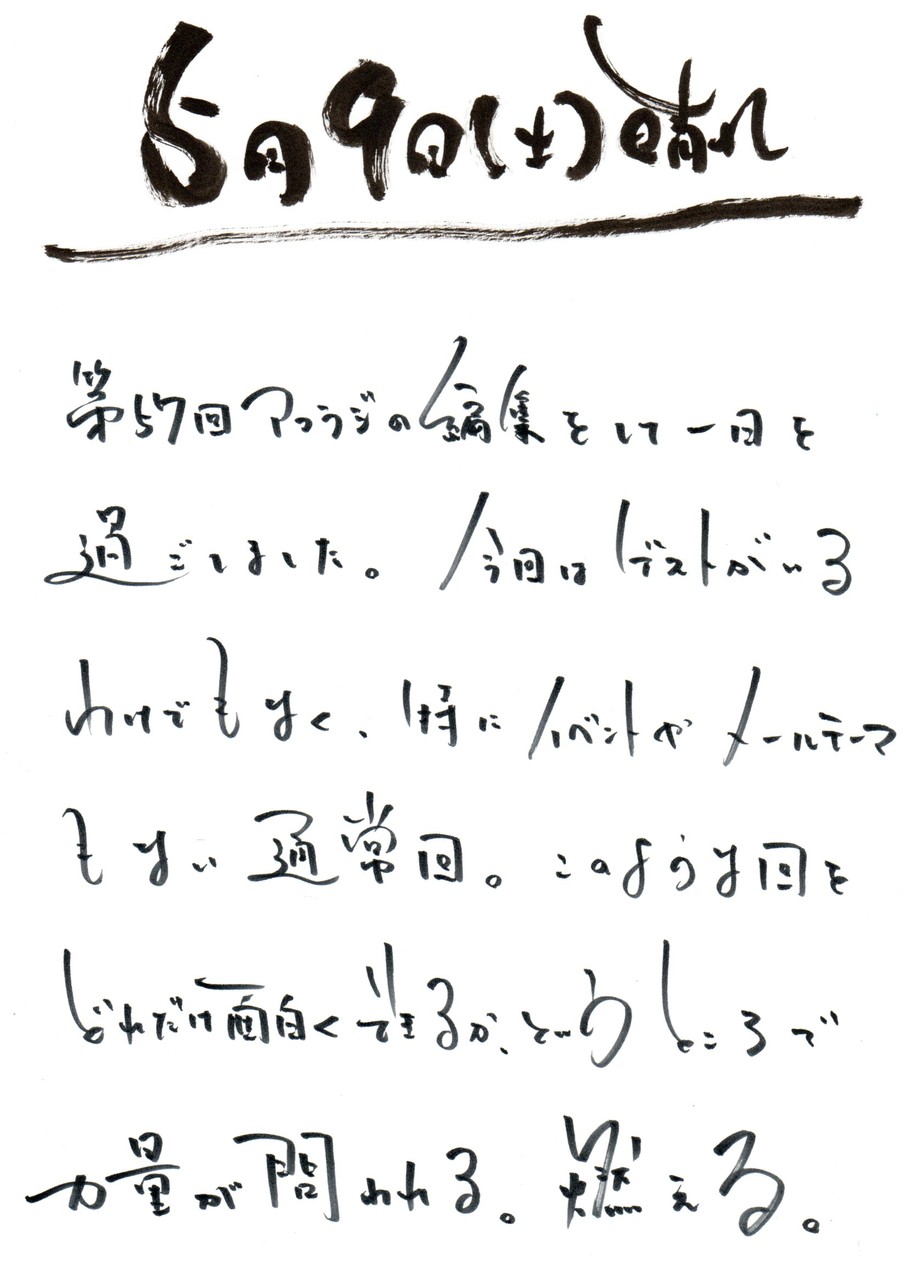 5月9日(土)晴れ
第57回アコラジの編集をして一日を
過ごしました。今回はゲストがいる
わけでもなく、特にイベントやメールテーマ
もない通常回。このような回を
どれだけ面白くできるか、というところで
力量が問われる。燃える。